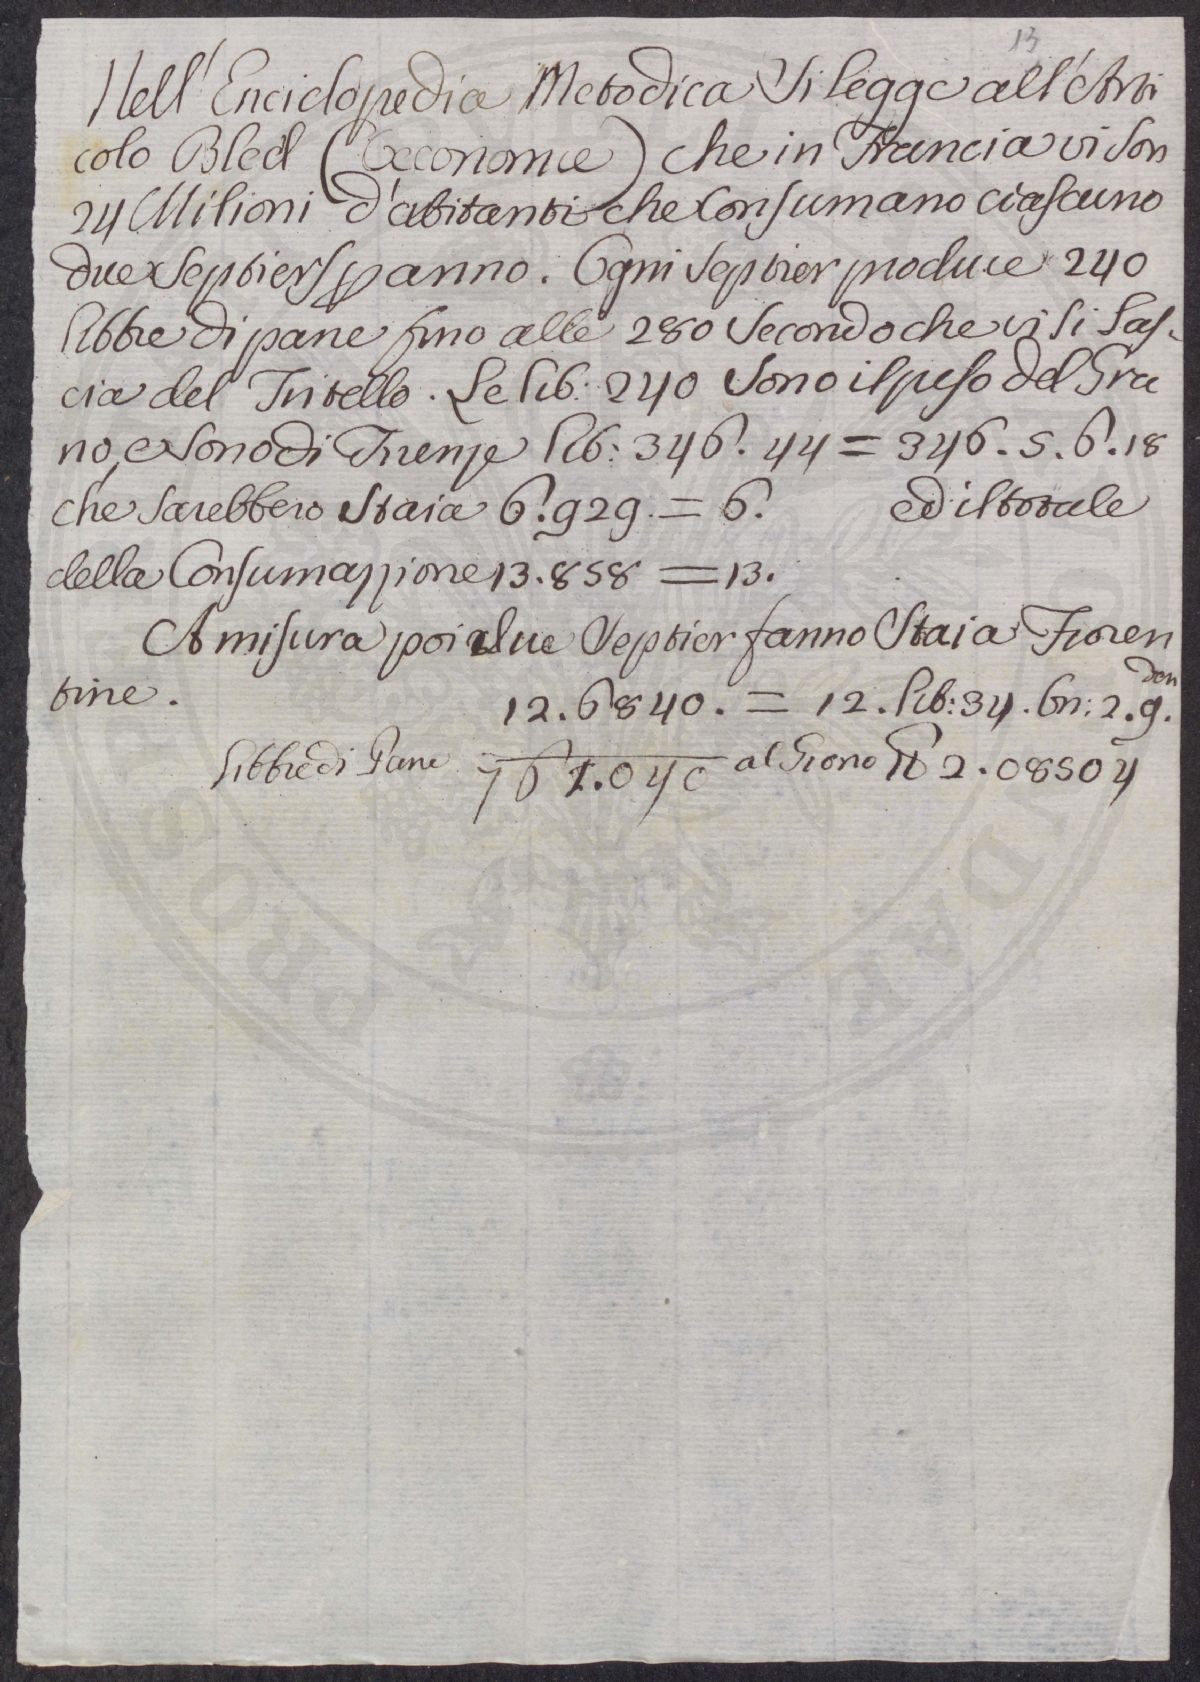 13
Nell'Enciclopedia Metodica Si legge all'Arti
colo Bled (Oeconomie) che in Francia vi son
24 Milioni d'abitanti che Consumano ciascuno
due Septiers p anno. Ogni Septier produce 240
libbre di pane fino alle 280 Secondo che vi si Las-
cia del Tritello. Le lib: 240 Sono il peso del Gra
no, e Sono di Firenze lib: 346. 44 = 346. 5. 6. 18
che sarebbero Staia 6.929. = 6. ed il totale
della Consumazione 13.858 = 13.
A misura poi due Septier fanno Staia Fioren
tine. 12.6840. = 12. lib: 34. On: 2. 9. den
libbre di Pane 761.040 al Giorno lb 2.08504